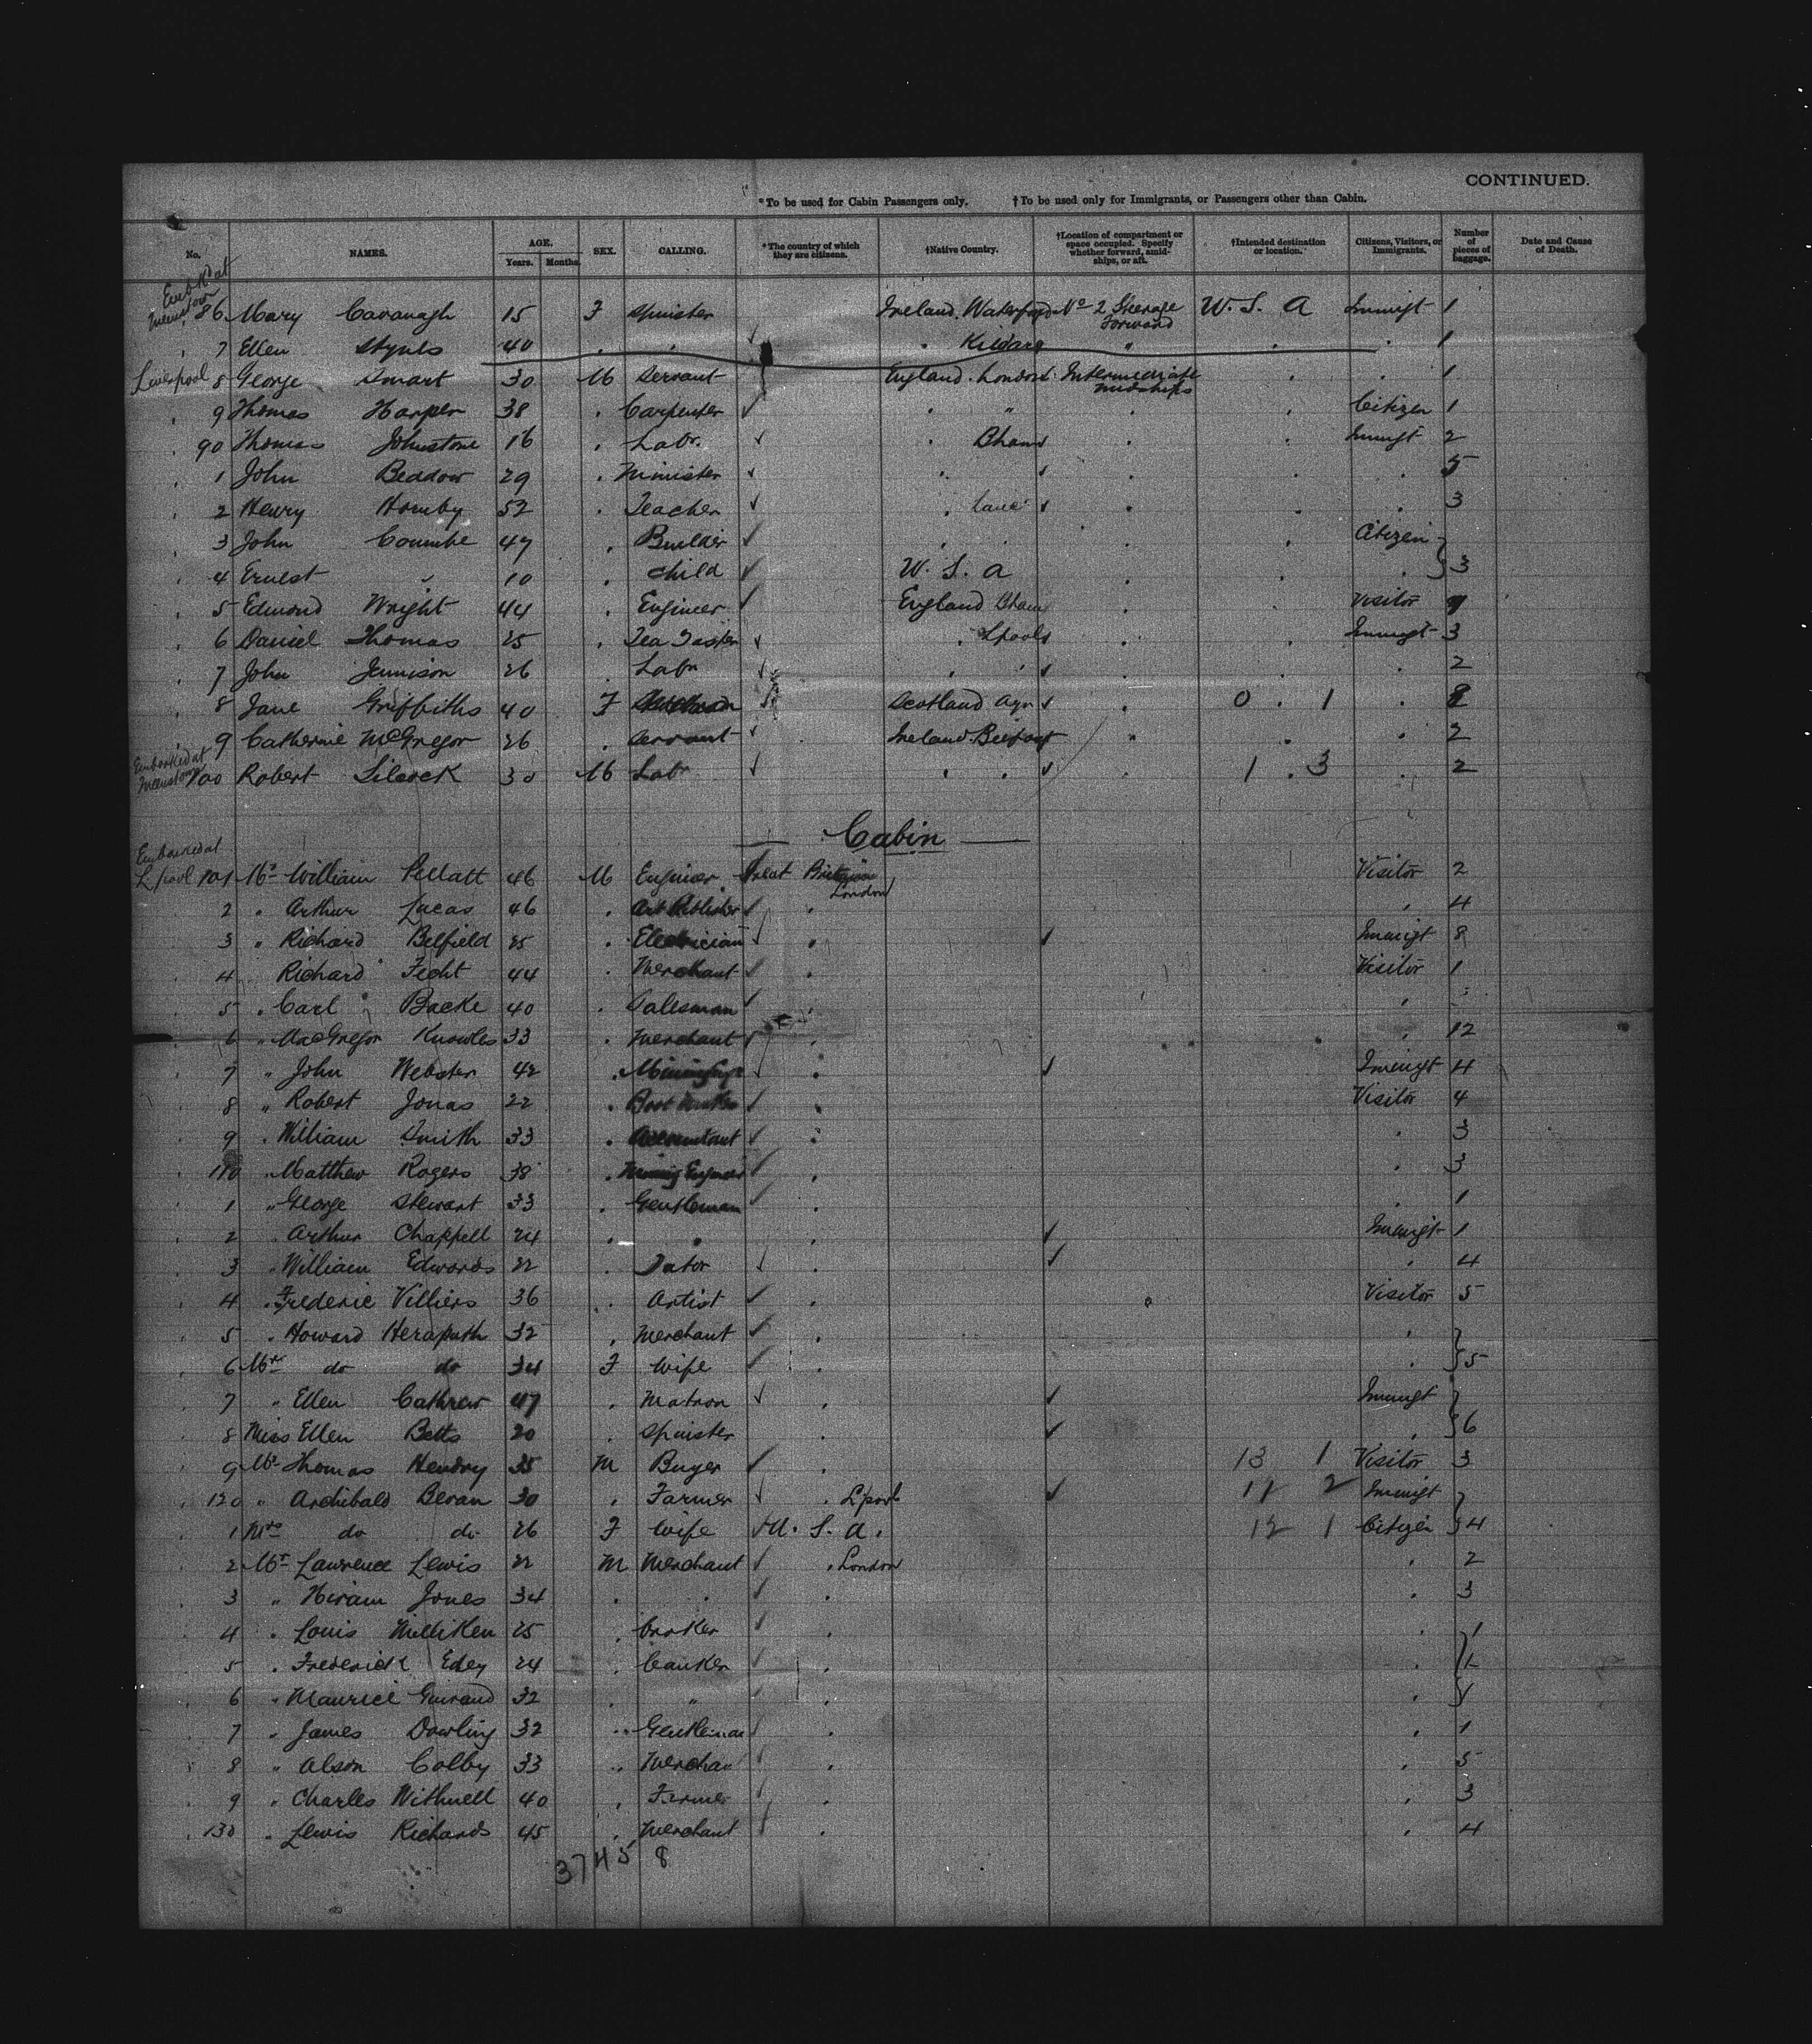 CONTINUED.
*To be used for Cabin Passengers only. †To be used only for Immigrants, or Passengers other than Cabin.
No. NAMES. AGE. Years. Months. SEX. CALLING. *The country of which they are citizens. †Native Country. †Location of compartment or space occupied. Specify whether forward, amidships, or aft. †Intended destination or location. Citizens, Visitors, or Immigrants. Number of pieces of baggage. Date and Cause of Death.
86 Mary Cavanagh 15 F Spinster Ireland. Waterford No 2 Steerage Forward U. S. A Immigt 1
7 Ellen 40 . . . Kildare " . . 1
Liverpool 8 George Smart 30 M Servant England. London Intermediate midships . . 1
. 9 Thomas Harper 38 . Carpenter . " . . Citizen 1
. 90 Thomas Johnstone 16 . Labr. . Bham . . Immigt 2
. 1 John Beddow 29 . Minister . . . . 5
. 2 Henry Hornby 52 . Teacher . Lanc . . . 3
. 3 John Coumbe 47 . Builder . . . . Citizen
. 4 Ernest " 10 . Child U. S. A . . . 3
. 5 Edmond Wright 44 . Engineer England Bham . . Visitor
. 6 Daniel Thomas 25 . Tea Taster . Lpool . . Immigt 3
. 7 John Jennison 26 . Labr . . . . . 2
. 8 Jane Griffiths 40 F Scotland Ayr . 0 . 1 .
. 9 Catherine McGregor 26 . Servant Ireland. Belfast " . . 2
Embarked at 100 Robert Silcock 30 M Labr . . . 1 . 3 . 2
Cabin
Embarked at
Lpool 101 Mr William Pellatt 46 M Engineer Great Britain London Visitor 2
2 " Arthur Lucas 46 . Art Publisher . . 4
3 " Richard Belfield 25 . Electrician . Immigt 8
4 " Richard Fecht 44 . Merchant . Visitor 1
5 " Carl Backe 40 . Salesman . .
6 " MacGregor Knowles 33 . Merchant . . 12
7 " John Webster 42 . . Immigt 4
8 " Robert Jonas 22 . . Visitor 4
9 " William Smith 33 . Accountant . . 3
110 " Matthew Rogers 38 . Mining Engineer . . 3
1 " George Stewart 33 . Gentleman . . 1
2 " Arthur Chappell 24 . . . Immigt 1
3 " William Edwards 22 . . . 4
4 " Frederic Villiers 36 . Artist . Visitor 5
5 " Howard Herapath 32 . Merchant . .
6 Mrs do do 34 F Wife . . 5
7 " Ellen Cathrew 47 . Matron . Immigt
8 Miss Ellen Betts 20 . Spinster . . 6
9 Mr Thomas Hendry 35 M Buyer . 13 1 Visitor 3
120 " Archibald Beran 30 . Farmer . Lpool 11 2 Immigt
1 Mrs do do 26 F Wife U. S. A. 12 1 Citizen 4
2 Mr Lawrence Lewis 22 M Merchant . London . 2
3 " Hiram Jones 34 . . . . 3
4 " Louis Milliken 25 . . 1
5 " Frederick Edey 24 . Banker . . 1
6 " Maurice Guiraud 32 . " . .
7 " James Dowling 32 . Gentleman . . 1
8 " Alson Colby 33 . Merchant . . 5
9 " Charles Withnell 40 . Farmer . . 3
130 " Lewis Richards 45 . Merchant . . 4
3745 8